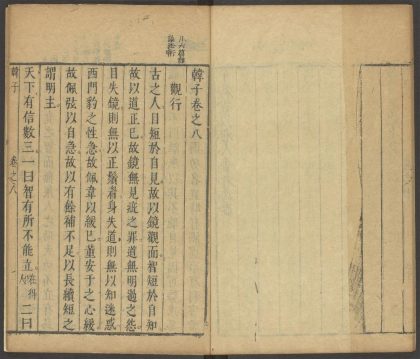 韓子卷之八
觀行
古之人目短於自見故以鏡觀面智短於自知
故以道正已故鏡無見疵之罪道無明過之怨
目失鏡則無以正鬚眉身失道則無以知迷惑
西門豹之性急故佩韋以緩已董安于之心緩
故佩弦以自急故以有餘補不足以長續短之
謂明主
天下有信數三一曰智有所不能立 二曰
韓子 卷之八